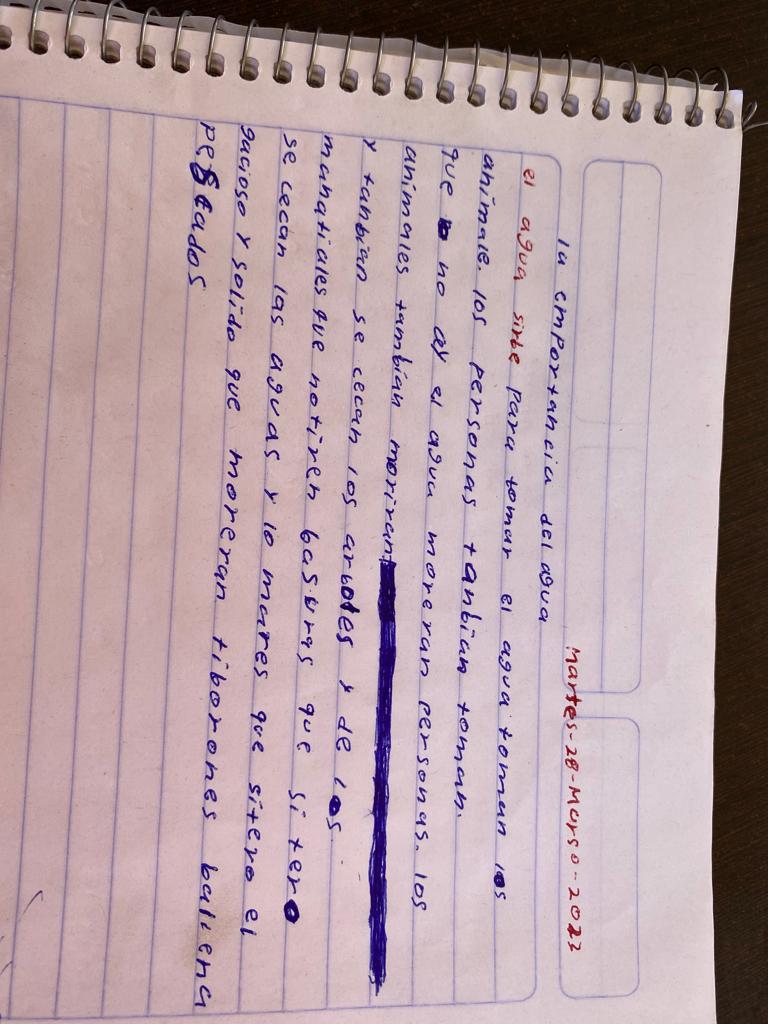 Martes-28-Marso-2023
la emportancia del agua
el agua sirbe para tomar el agua toman los
animale. los personas tanbian toman.
que no ay el agua moreran personas. los
animales tambian moriran
y tanbian se cecan los arboles y de los.
manatiales que notiren basuras que si tero
se cecan las aguas y lo mares que sitero el
gacioso y solido que moreran tiborones baliena
pescados